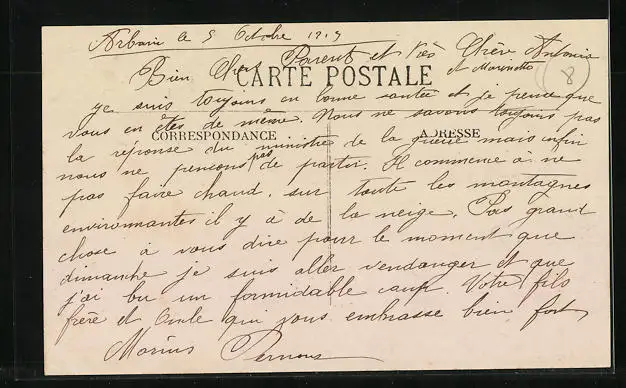 Arbois le 5 Octobre 1919
Bien Chers Parents et très Chère Antonia
et Marinette
8
CARTE POSTALE
je suis toujours en bonne santée et je pense que
vous en êtes de même. Nous ne savons toujours pas
CORRESPONDANCE
ADRESSE
la réponse du ministre de la guerre mais enfin
nous ne pensons pas de partir. Il commence à ne
pas faire chaud, sur toute les montagnes
environnantes il y à de la neige. Pas grand
chose à vous dire pour le moment que
dimanche je suis aller vendanger et que
j'ai bu un formidable coup. Votre fils
frère et Oncle qui vous embrasse bien fort,
Marius